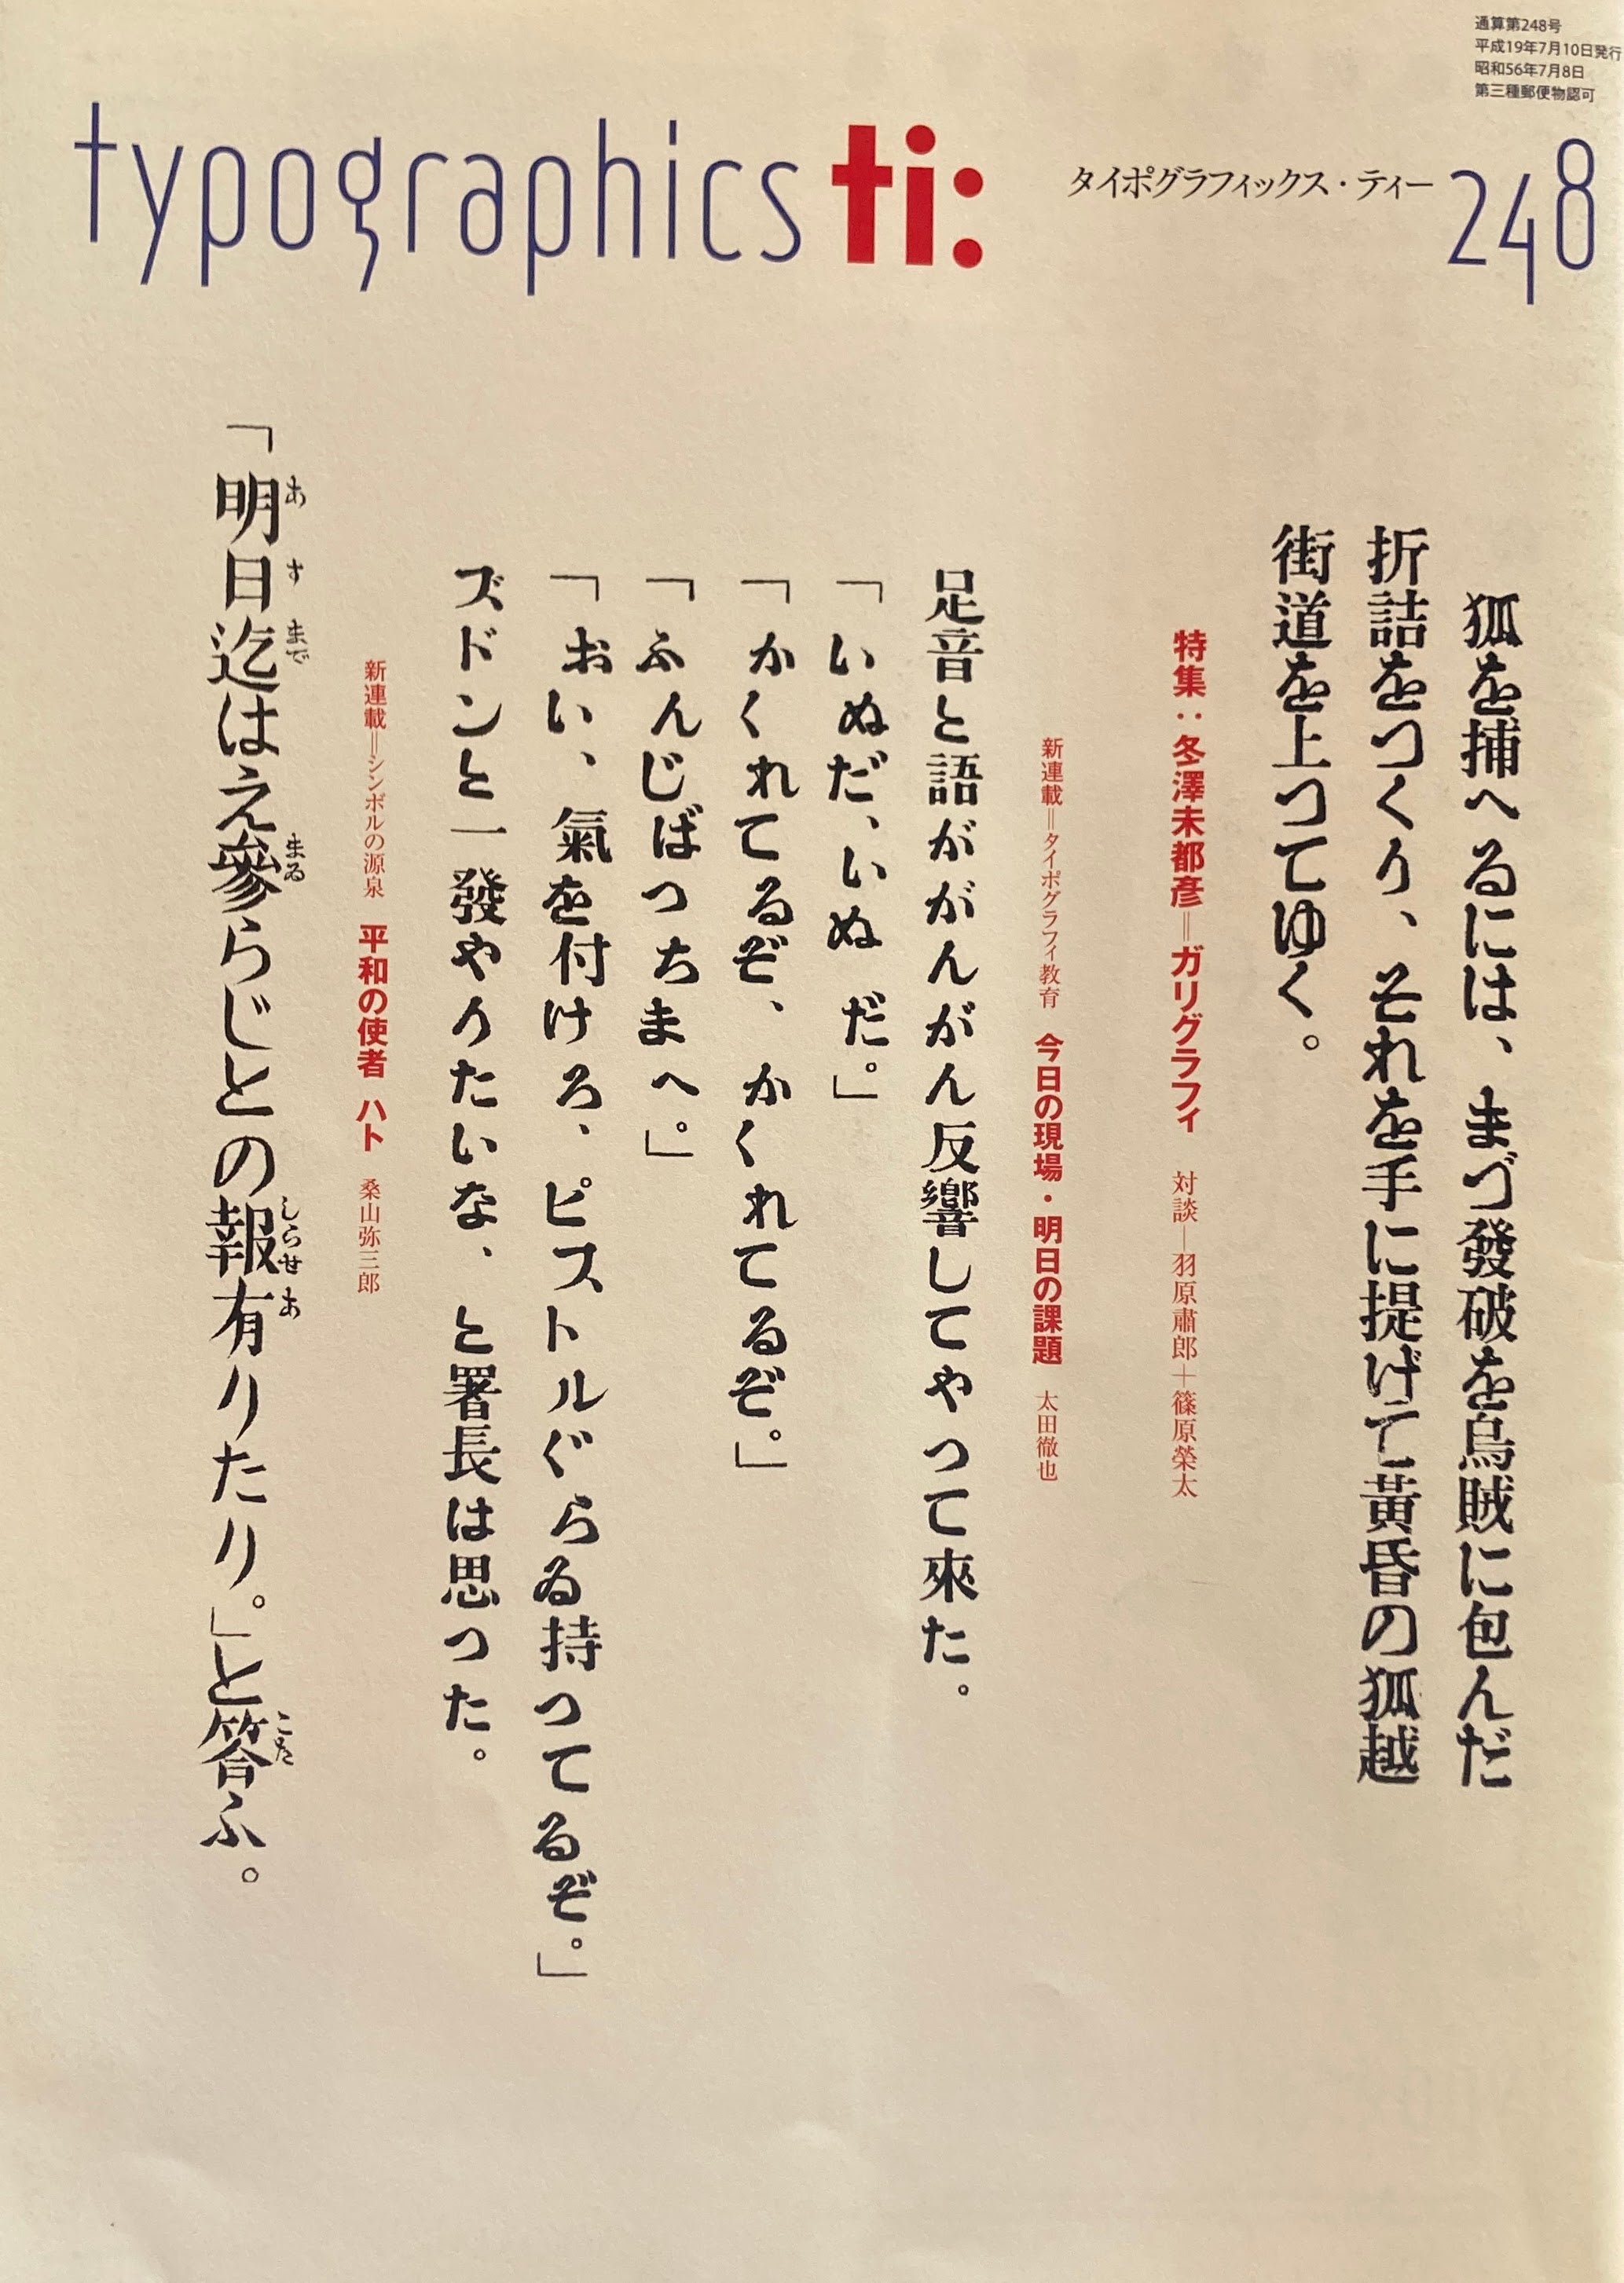 通算第248号
平成19年7月10日発行
昭和56年7月8日
第三種郵便物認可
typographics ti:
タイポグラフィックス・ティー
248
狐を捕へるには、まづ發破を烏賊に包んだ
折詰をつくり、それを手に提げて黃昏の狐越
街道を上つてゆく。
特集：冬澤未都彦＝ガリグラフィ　対談—羽原肅郎＋篠原榮太
新連載＝タイポグラフィ教育　今日の現場・明日の課題　太田徹也
足音と語ががんがん反響してやつて來た。
「いぬだ、いぬだ。」
「かくれてるぞ、かくれてるぞ。」
「ふんじばつちまへ。」
「おい、氣を付けろ、ピストルぐらゐ持つてるぞ。」
ズドンと一發やりたいな、と署長は思つた。
新連載＝シンボルの源泉　平和の使者　ハト　桑山弥三郎
「明日迄はえ參らじとの報有りたり。」と答ふ。
あ す まで まゐ しらせ あ こた